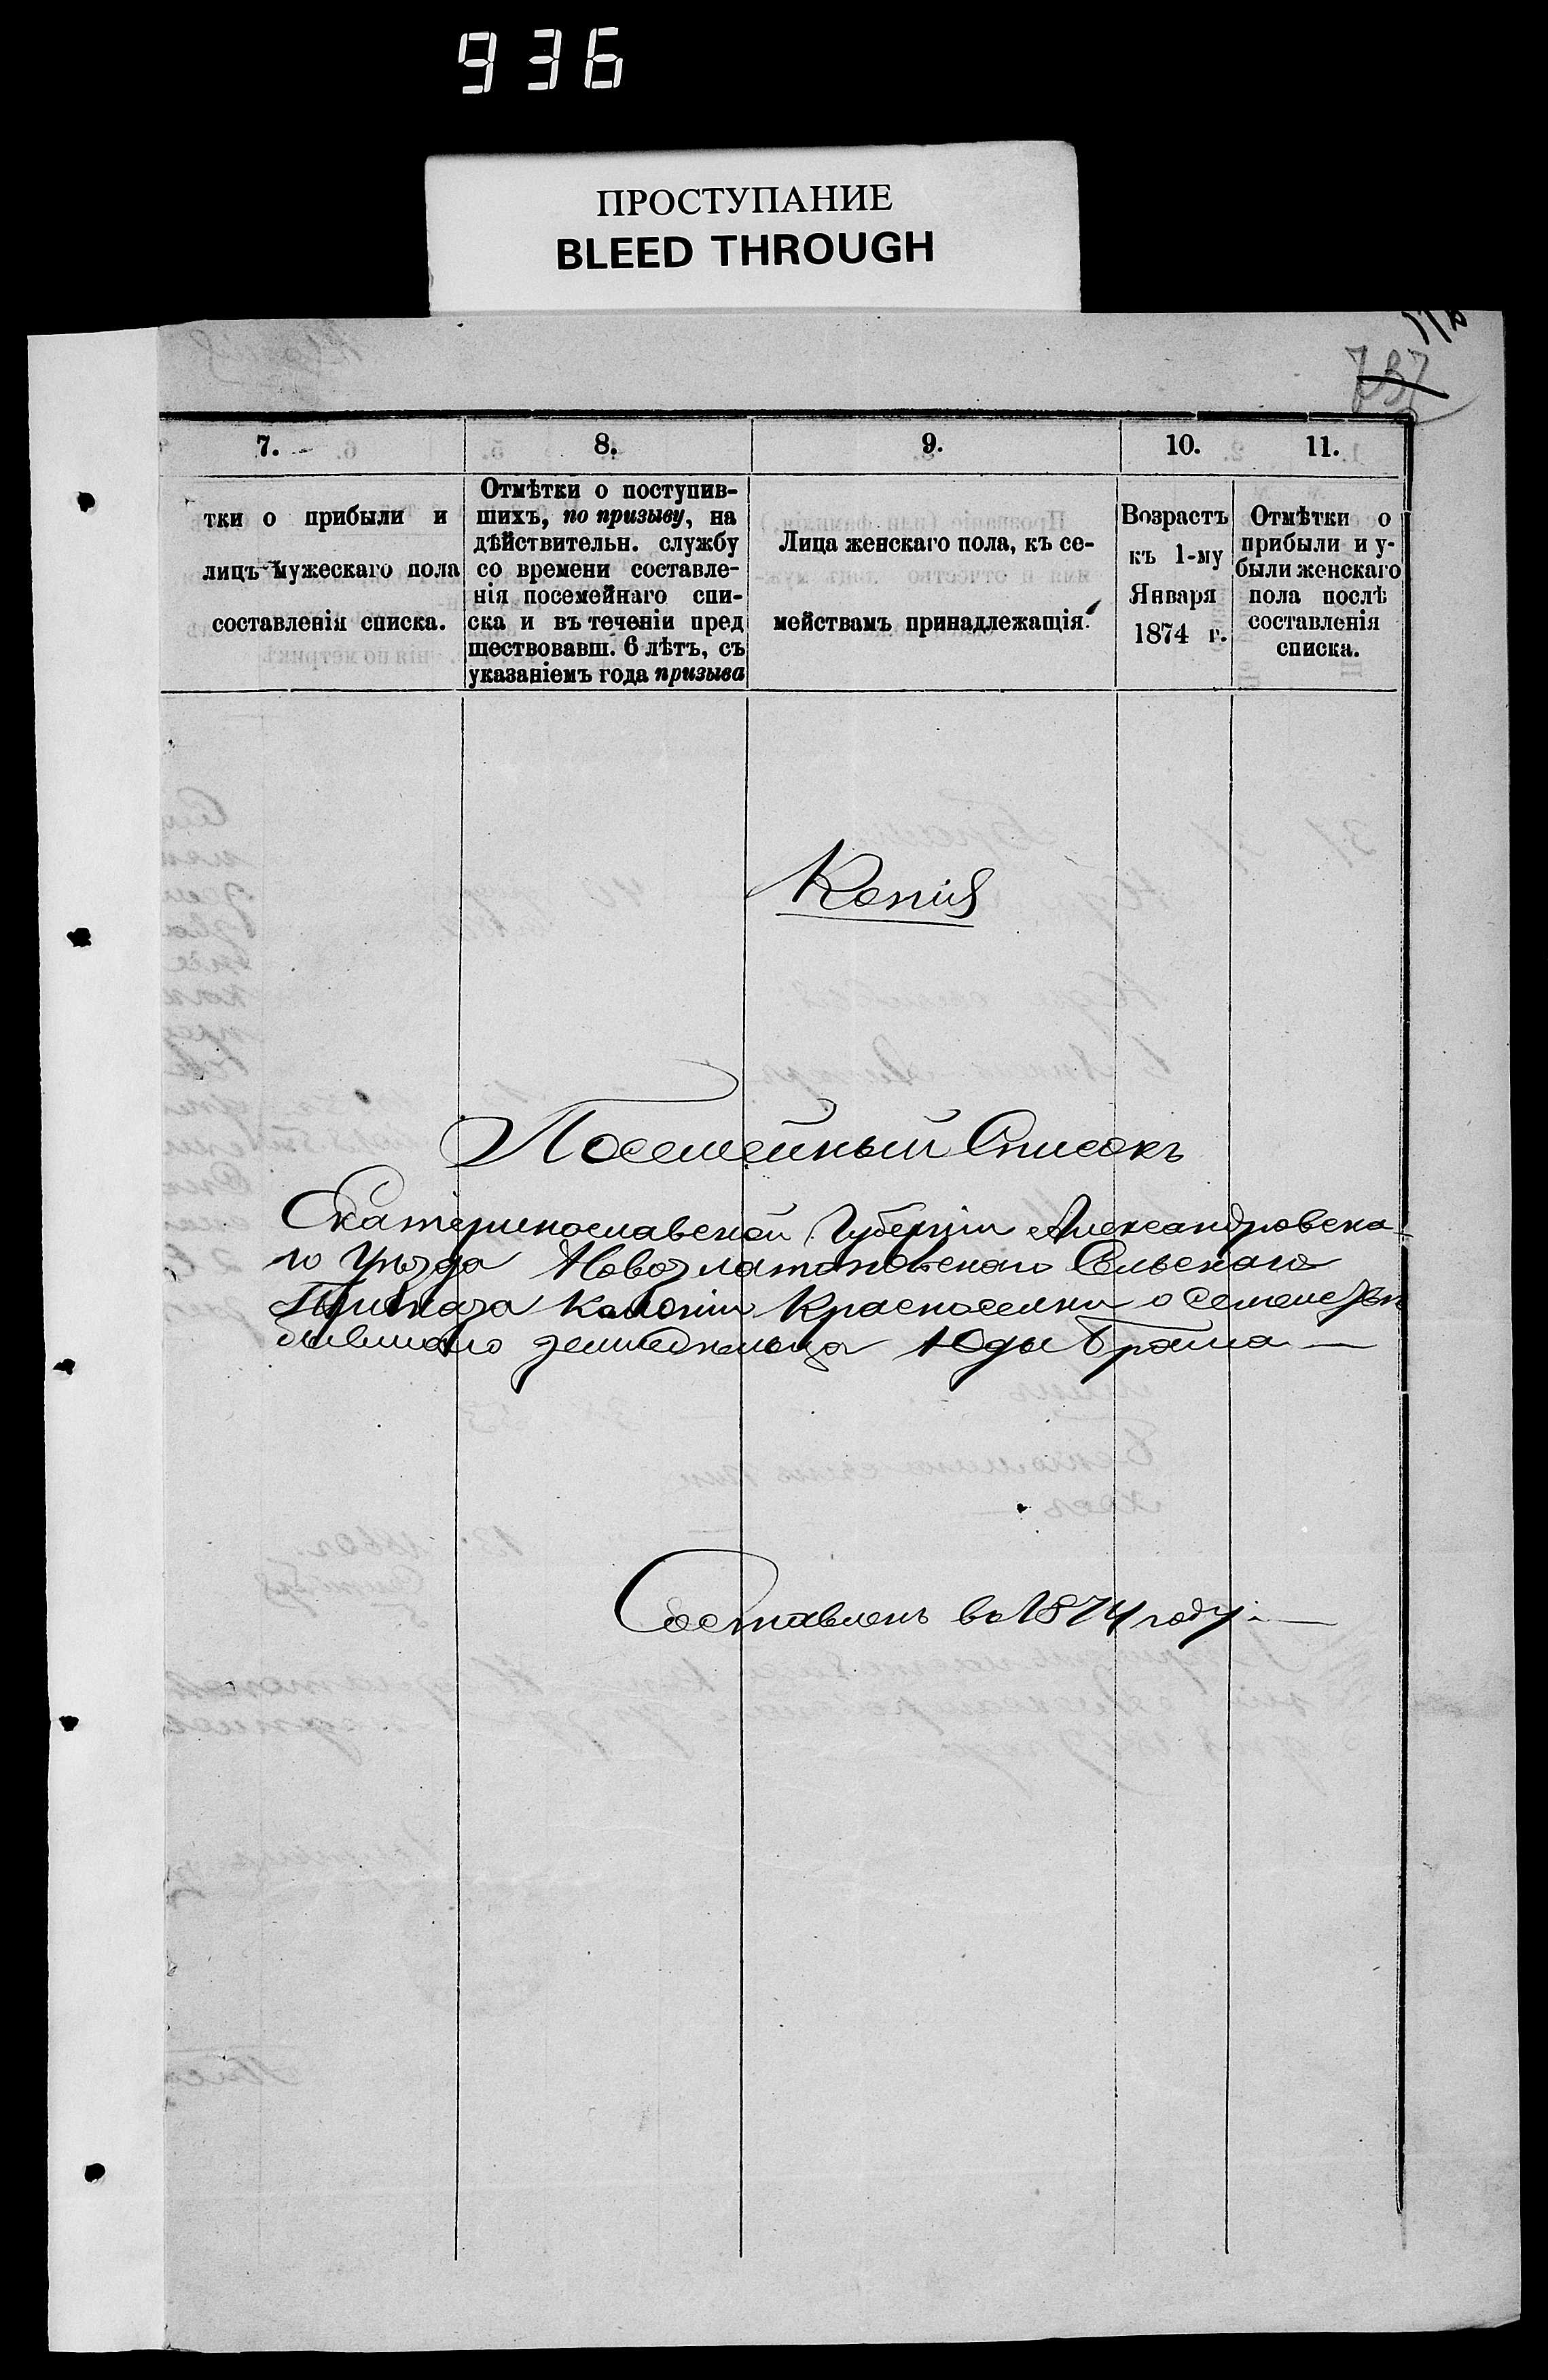 936
ПРОСТУПАНИЕ
BLEED THROUGH
737
7. 8. 9. 10. 11.
тки о прибыли и
лицъ мужескаго пола
составленія списка.
Отмѣтки о поступив-
шихъ, по призыву, на
дѣйствительн. службу
со времени составле-
нія посемейнаго спи-
ска и въ теченіи пред
шествовавш. 6 лѣтъ, съ
указаніемъ года призыва
Лица женскаго пола, къ се-
мействамъ принадлежащія.
Возрастъ
къ 1-му
Января
1874 г.
Отмѣтки о
прибыли и у-
были женскаго
пола послѣ
составленія
списка.
Копія
Посемейный Списокъ
Екатеринославской Губерніи Александровска-
го Уѣзда Новозлатопольскаго Сельскаго
Приказа Колоніи Красноселки о Семействѣ
бывшаго земледѣльца Юды Брама
Составленъ въ 1874 году.